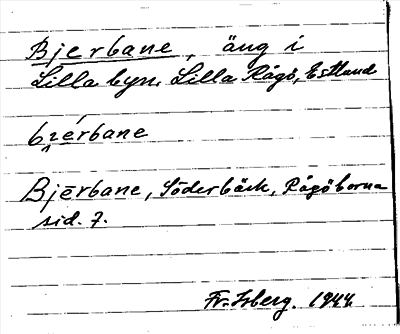 Bjerbane, äng i
Lilla byn, Lilla Rågö, Estland
bi̯érbane
Bjērbane, Söderbäck, Rågöborna
sid. 7.
Fr. Isberg. 1944